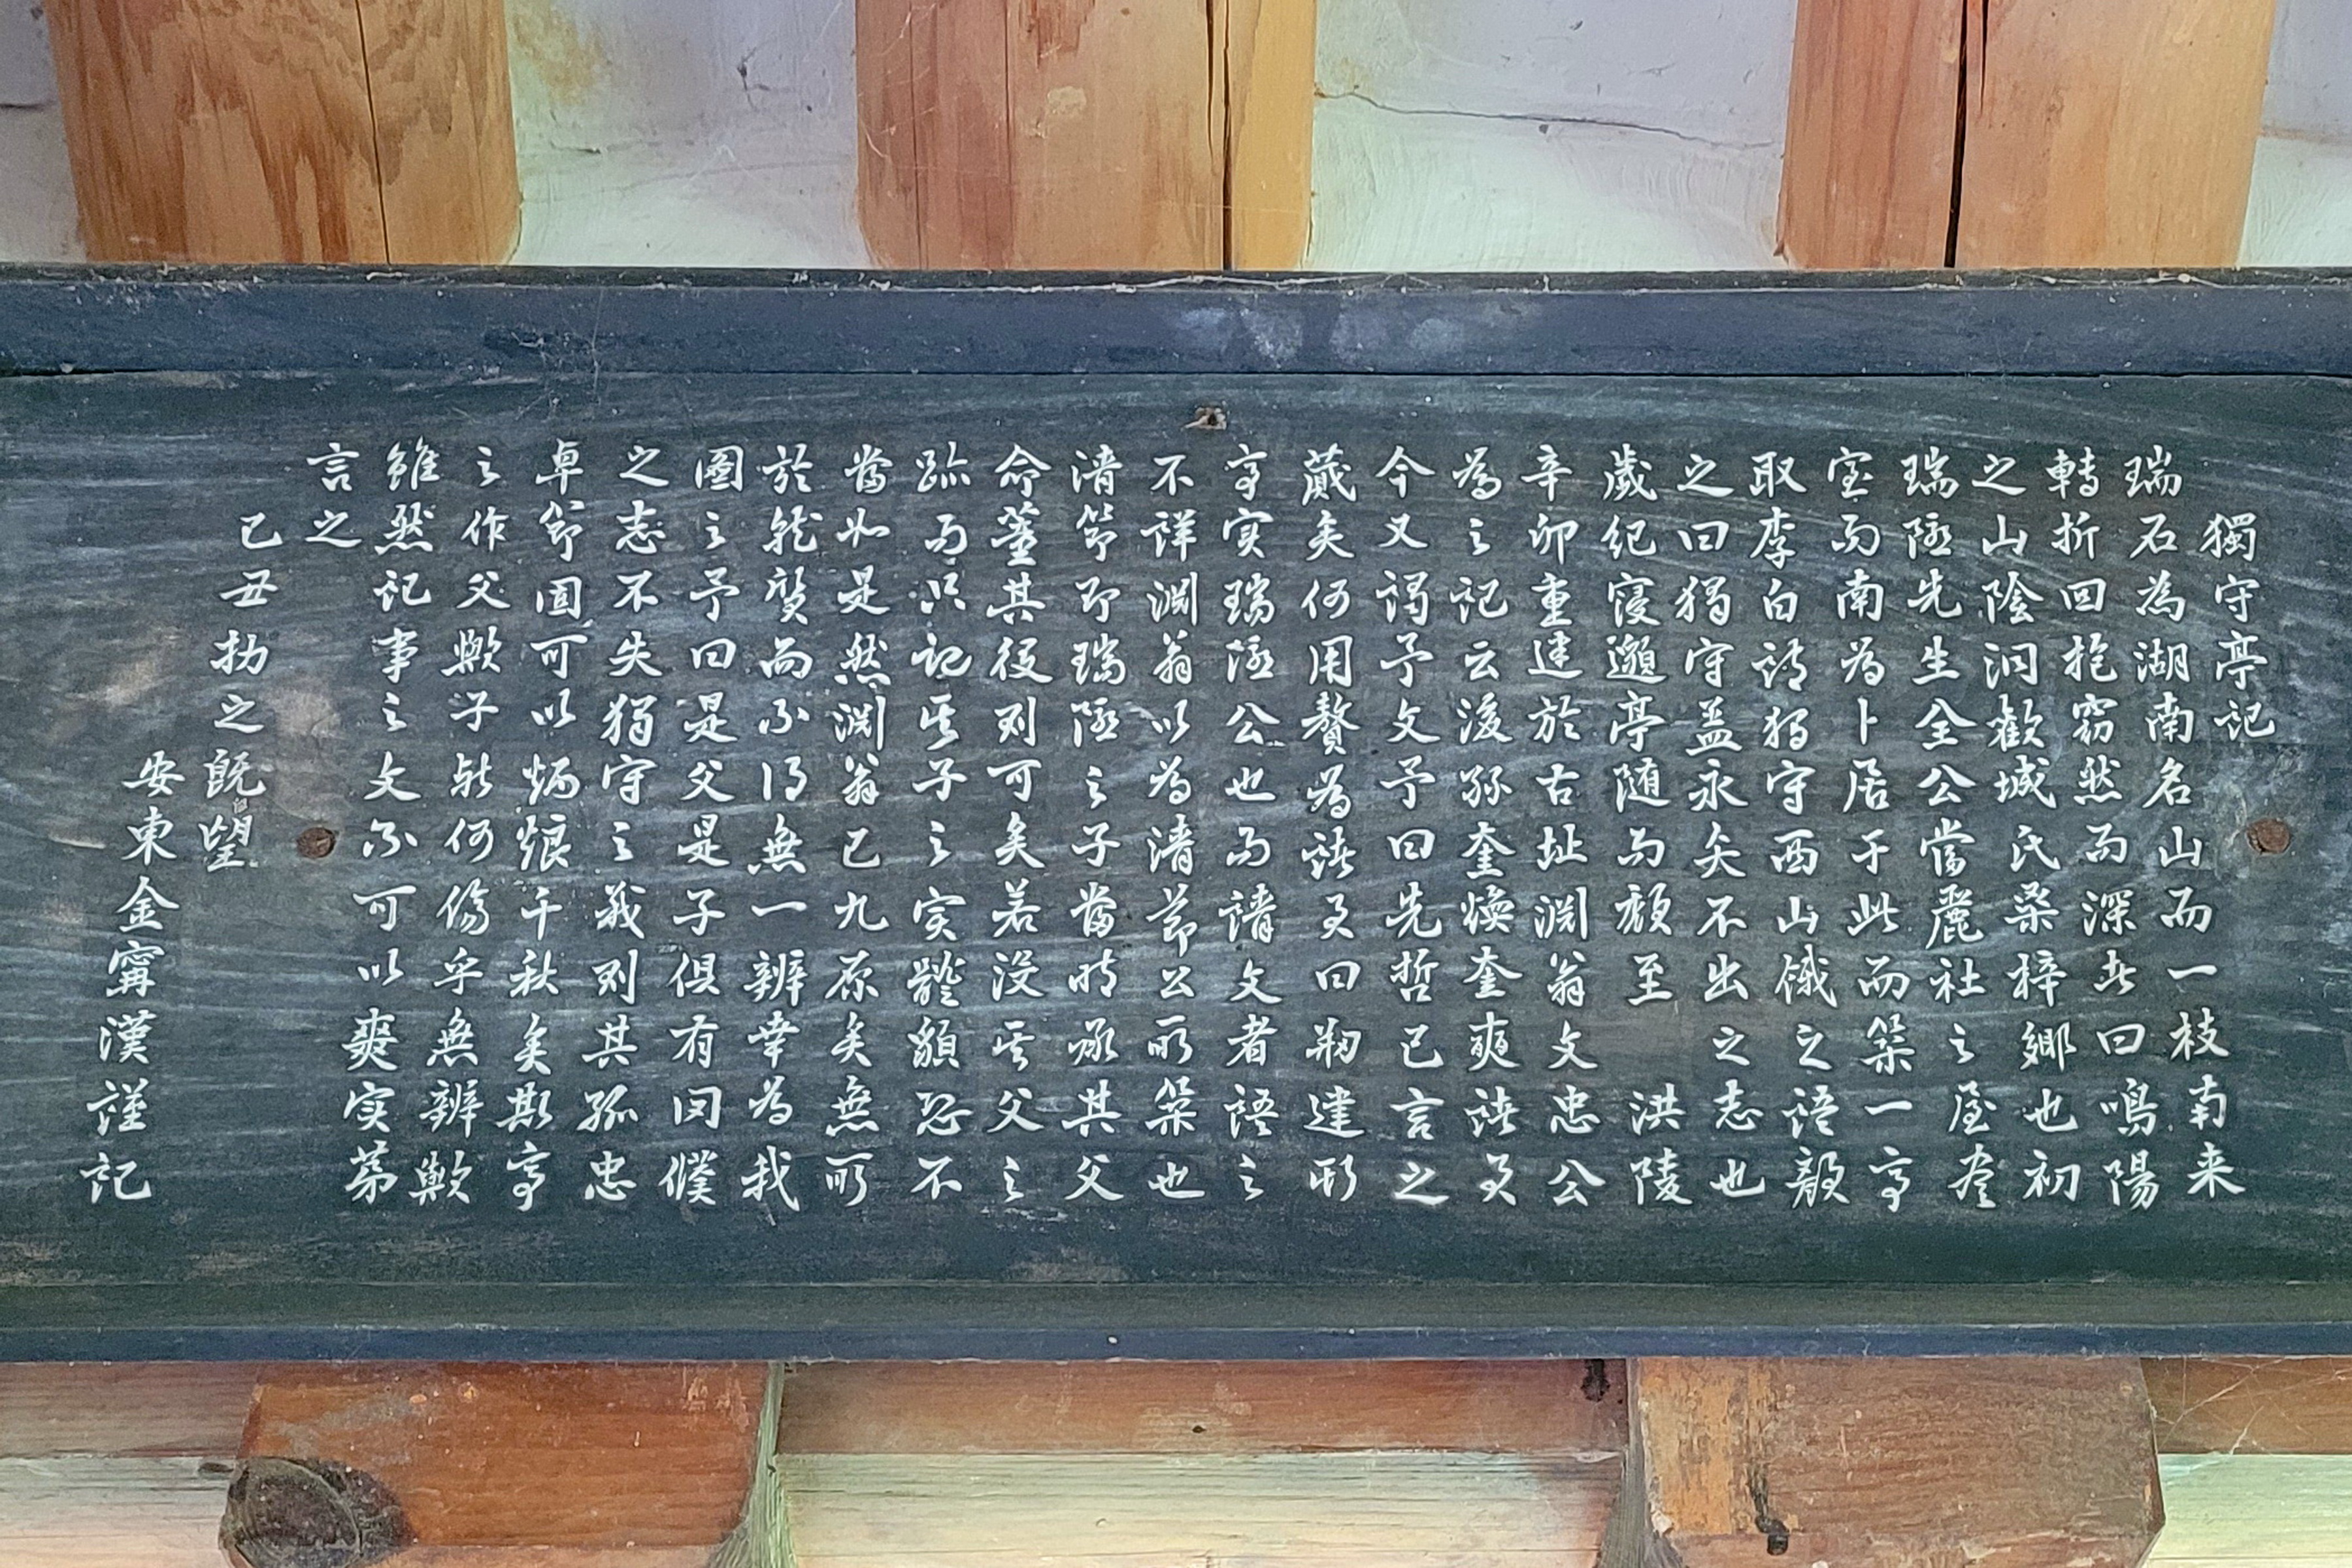 獨守亭記
瑞石為湖南名山而一枝南来
轉折回抱窈然而深者曰鳴陽
之山陰洞歡城氏桑梓鄉也初
瑞隱先生全公當麗社之屋奉
室而南為卜居于此而築一亭
取李白詩獨守西山餓之語顏
之曰獨守盖永矢不出之志也
歲紀寖邈亭随而頹至 洪陵
辛卯重建於古址淵翁文忠公
為之記云後孫奎煥奎奭請予
今又謁予文予曰先哲已言之
蕆矣何用贅為請予曰刱建斯
亭实瑞隱公也而請文者語之
不詳淵翁以為清節公所築也
清節即瑞隱之子當時承其父
命董其役則可矣若沒其父之
跡而只記其子之实豈顧恐不
當如是然淵翁已九原矣無所
於就質而不得無一辨幸為我
圖之予曰是父是子俱有罔僕
之志不失獨守之義則其孤忠
卓節固可以炳烺千秋矣斯亭
之作父歟子歟何傷乎無辨歟
雖然記事之文不可以爽实第
言之
已丑抅之既望
安東金甯漢謹記